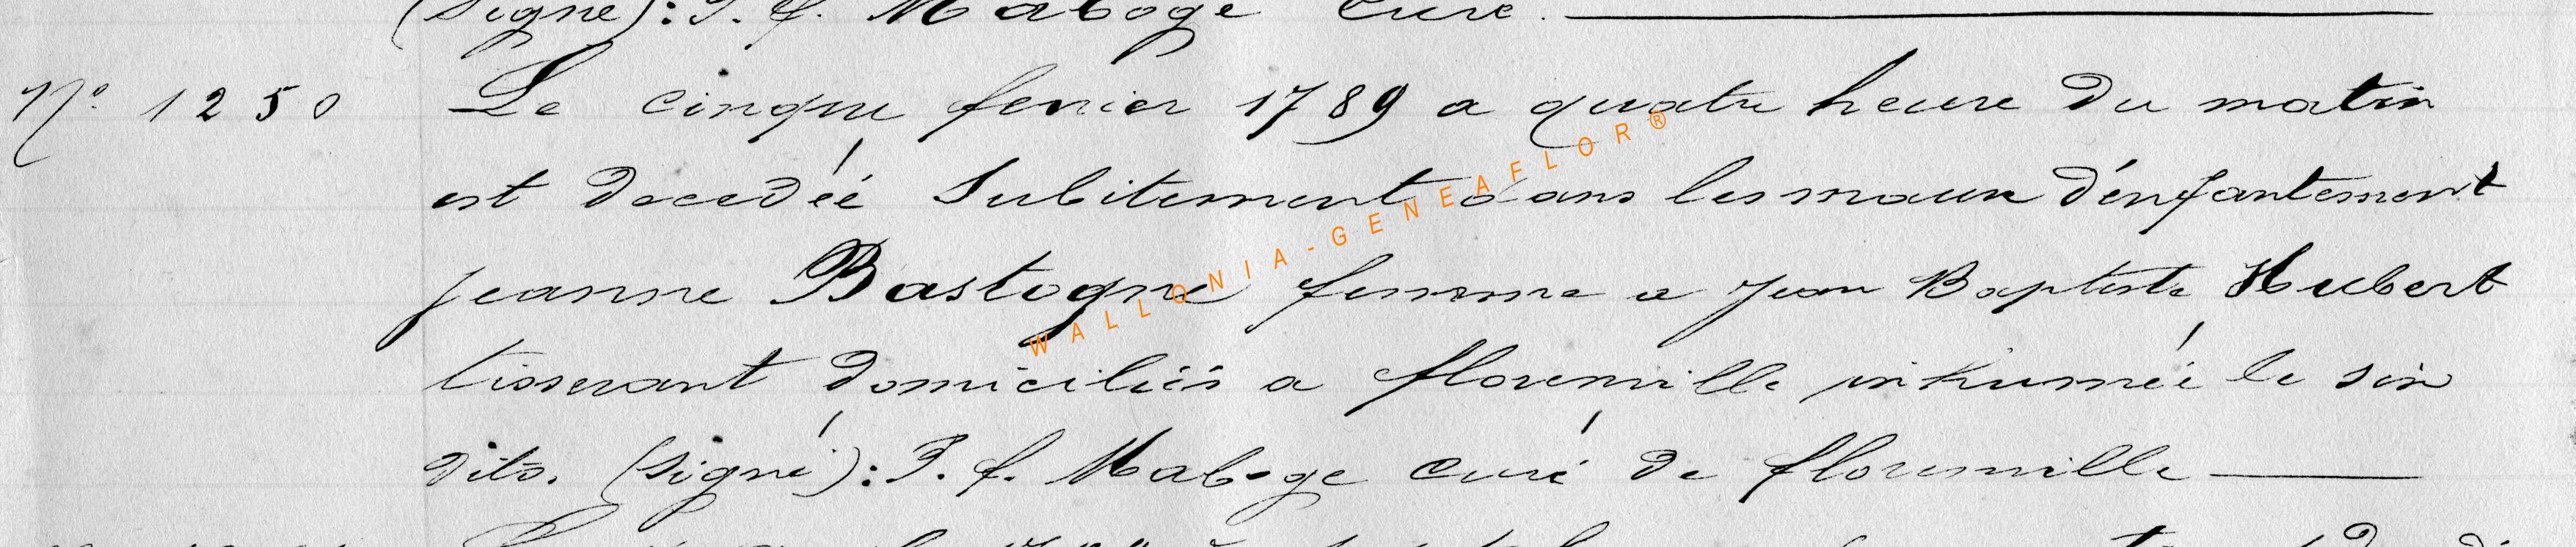 (Signé): J. f. Maboge Curé.
N° 1250 Le cinque fevrier 1789 a quatre heure du matin
est decedéé Subitement dans les maux d'énfantement
jeanne Bastogne femme a jean Baptiste Hubert
tisserant domiciliés a florenville inhuméé le six
dito. (Signé): J. f. Maboge curé de florenville
WALLONIA-GENEAFLOR®